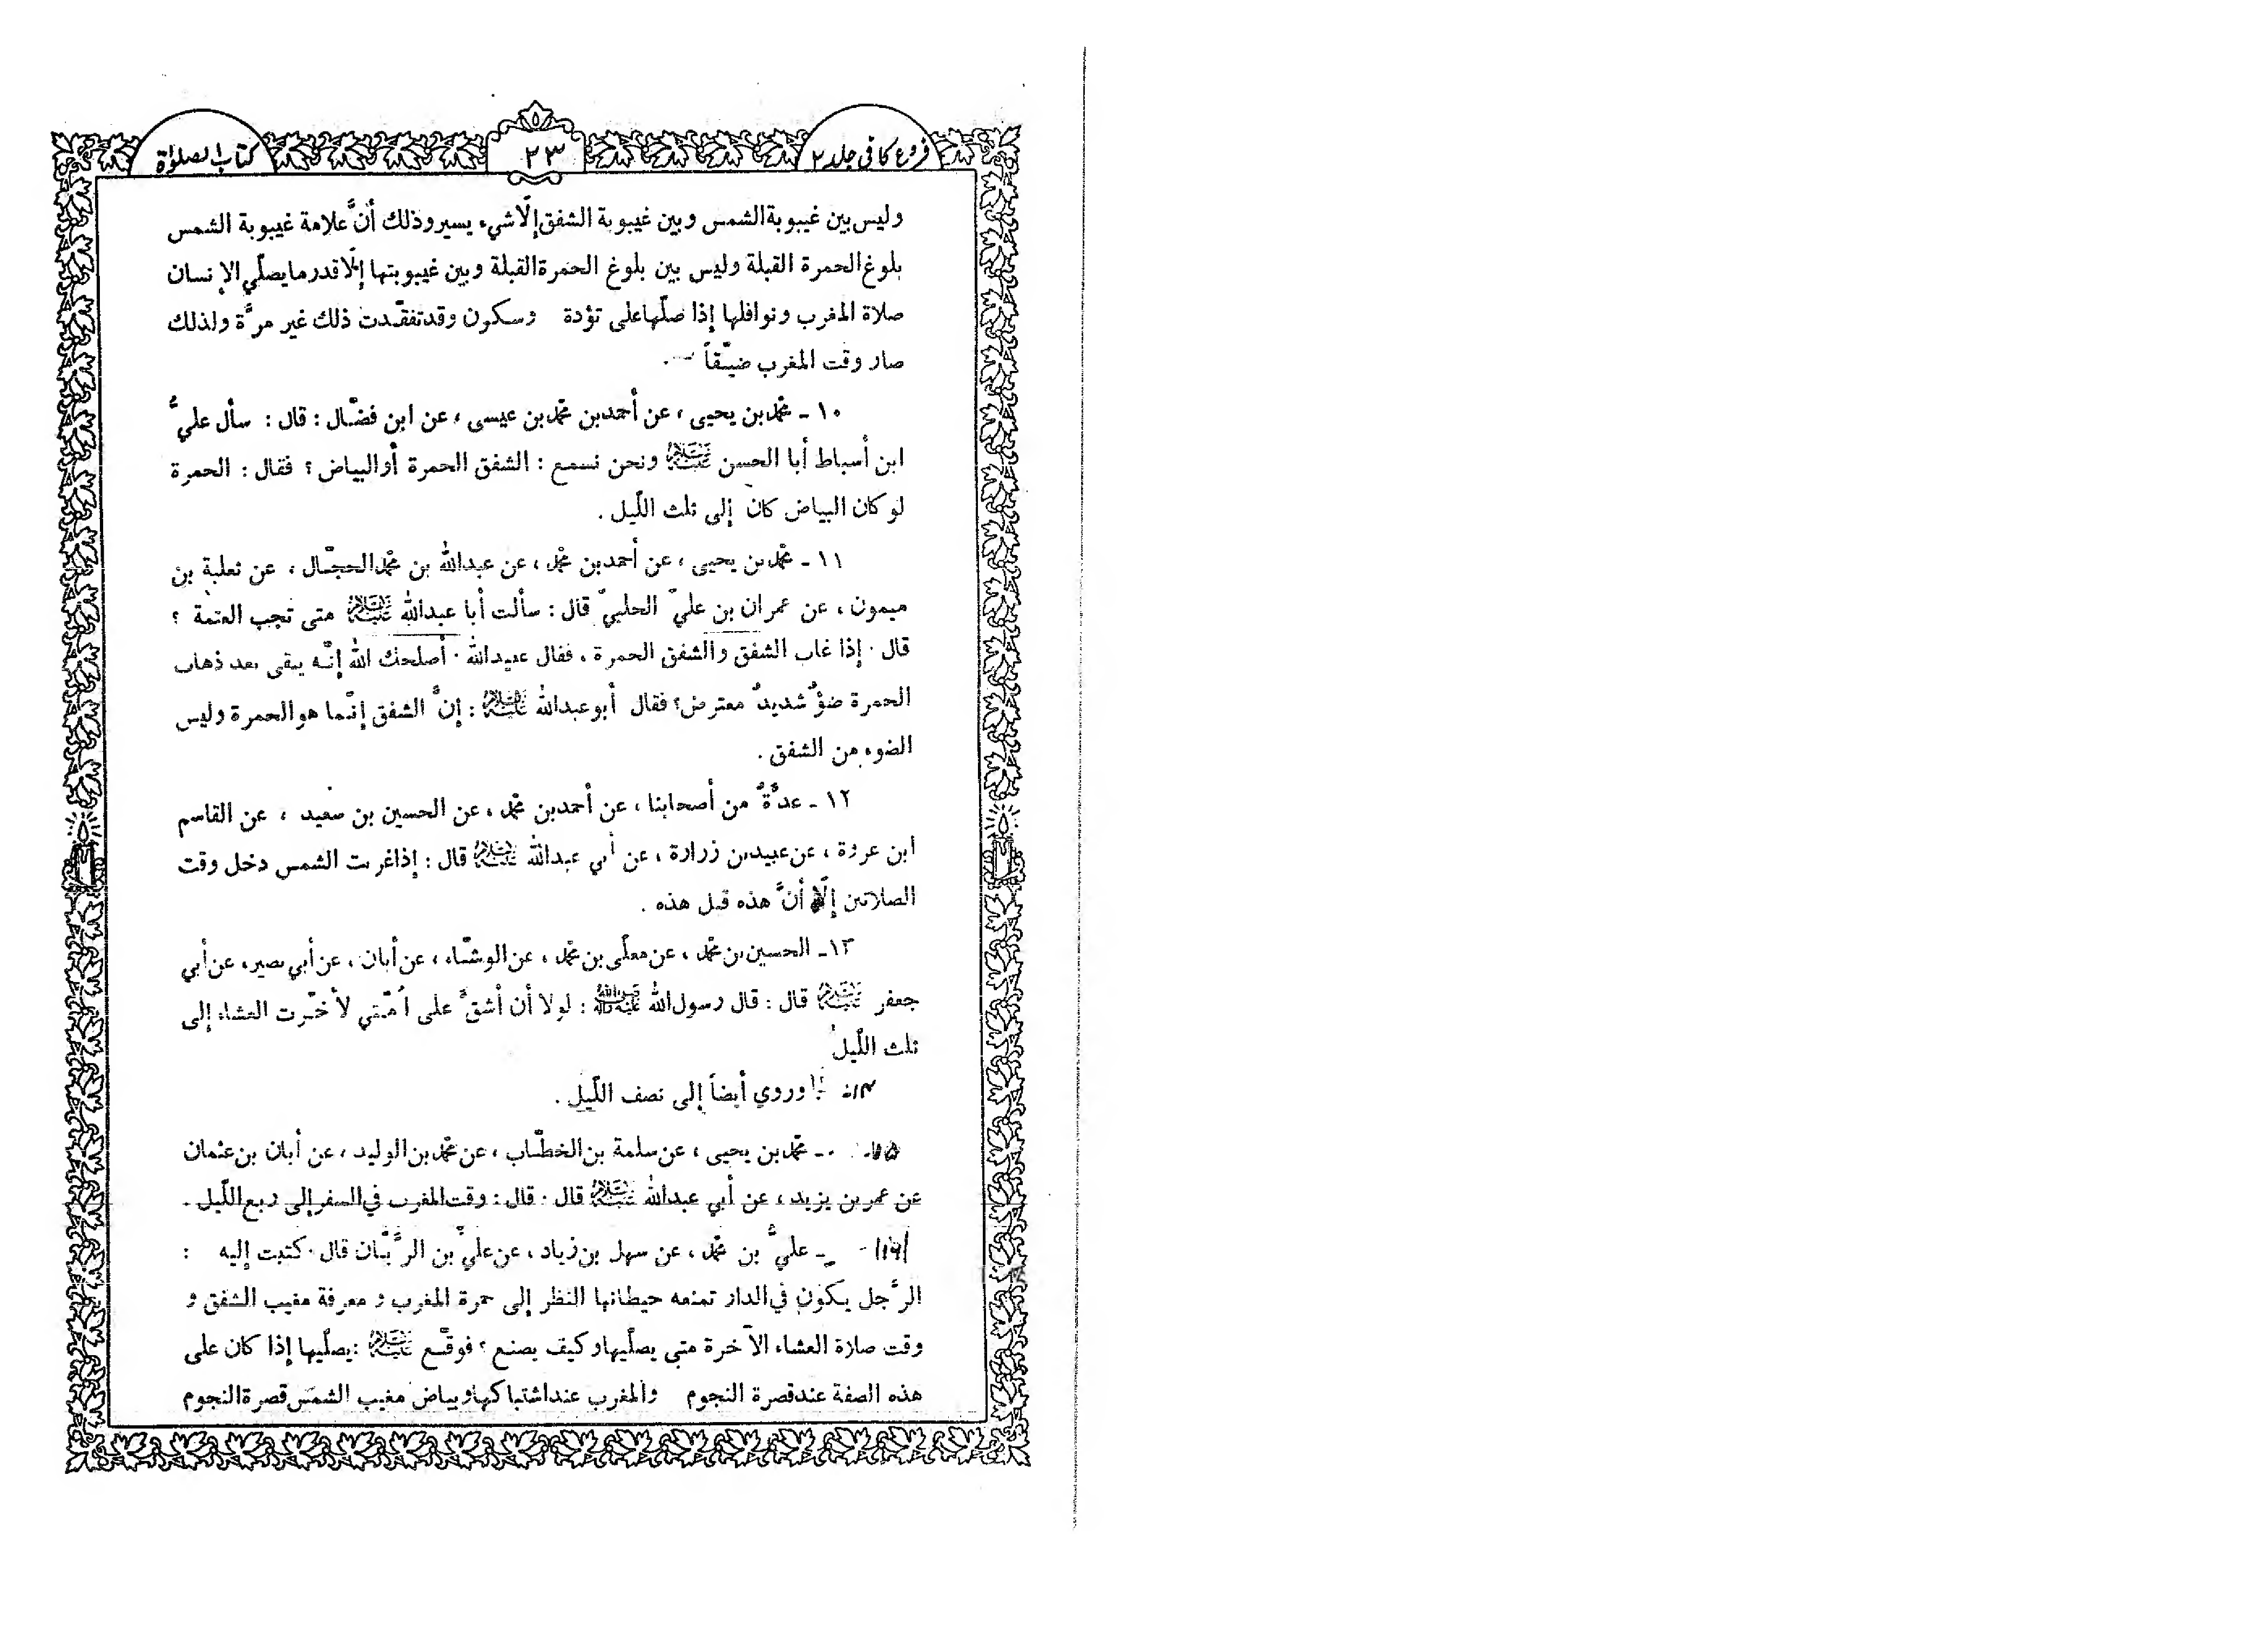 فروع کافی جلد ۲
۲۳
کتاب الصلوٰة
وليس بين غيبوبة الشمس وبين غيبوبة الشفق إلّا شيء يسير وذلك أنَّ علامة غيبوبة الشمس
بلوغ الحمرة القبلة وليس بين بلوغ الحمرة القبلة وبين غيبوبتها إلّا قدر ما يصلّي الإنسان
صلاة المغرب ونوافلها إذا صلّاها على تؤدة وسكون وقد تفقّدت ذلك غير مرَّة ولذلك
صار وقت المغرب ضيّقاً .
١٠ ـ محمّد بن يحيى ، عن أحمد بن محمّد بن عيسى ، عن ابن فضّال : قال : سأل عليُّ
ابن أسباط أبا الحسن عليه السلام ونحن نسمع : الشفق الحمرة أو البياض ؟ فقال : الحمرة
لو كان البياض كان إلى ثلث اللّيل .
١١ ـ محمّد بن يحيى ، عن أحمد بن محمّد ، عن عبدالله بن محمّد الحجّال ، عن ثعلبة بن
ميمون ، عن عمران بن عليّ الحلبيّ قال : سألت أبا عبدالله عليه السلام متى تجب العتمة ؟
قال . إذا غاب الشفق والشفق الحمرة ، فقال عبيدالله . أصلحك الله إنّه يبقى بعد ذهاب
الحمرة ضوْءٌ شديدٌ معترض؟ فقال أبو عبدالله عليه السلام : إنَّ الشفق إنّما هو الحمرة وليس
الضوء من الشفق .
١٢ ـ عدَّةٌ من أصحابنا ، عن أحمد بن محمّد ، عن الحسين بن سعيد ، عن القاسم
ابن عروة ، عن عبيد بن زرارة ، عن أبي عبدالله عليه السلام قال : إذا غربت الشمس دخل وقت
الصلاتين إلّا أنَّ هذه قبل هذه .
١٣ـ الحسين بن محمّد ، عن معلّى بن محمّد ، عن الوشّاء ، عن أبان ، عن أبي بصير ، عن أبي
جعفر عليه السلام قال : قال رسول الله صلى الله عليه وآله : لولا أن أشقَّ على اُمّتي لأخّرت العشاء إلى
ثلث اللّيل
۱۴ـ وروي أيضاً إلى نصف اللّيل .
۱۵ـ محمّد بن يحيى ، عن سلمة بن الخطّاب ، عن محمّد بن الوليد ، عن أبان بن عثمان
عن عمر بن يزيد ، عن أبي عبدالله عليه السلام قال . قال : وقت المغرب في السفر إلى ربع اللّيل .
۱۶ـ عليُّ بن محمّد ، عن سهل بن زياد ، عن عليِّ بن الرَّيّان قال . كتبت إليه :
الرَّجل يكون في الدار تمنعه حيطانها النظر إلى حمرة المغرب و معرفة مغيب الشفق و
وقت صلاة العشاء الآخرة متى يصلّيها وكيف يصنع ؟ فوقّع عليه السلام : يصلّيها إذا كان على
هذه الصفة عند قصرة النجوم والمغرب عند اشتباكها وبياض مغيب الشمس قصرة النجوم